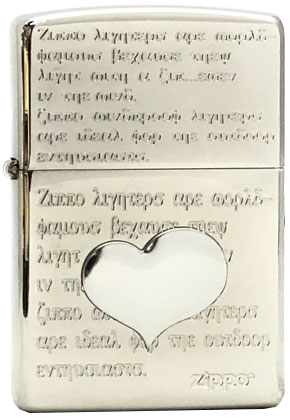 Ζιππο λιγητερσ αρε ωορλδ–
φαμουσ βεχαυσε τηεψ
λιγητ ωιτη α ζιπ...εϖεν
ιν τηε ωινδ.
Ζιππο ωινδπροοφ λιγητερσ
αρε ιδεαλ φορ τηε ουτδοορ
εντηυσιαστσ.
Ζιππο λιγητερσ αρε ωορλδ–
φαμουσ βεχαυσε τηεψ
λιγητ
ιν τη
ζιππο
αρε ιδεαλ φορ τηε ουτδοορ
εντηυσιαστσ.
Zippo